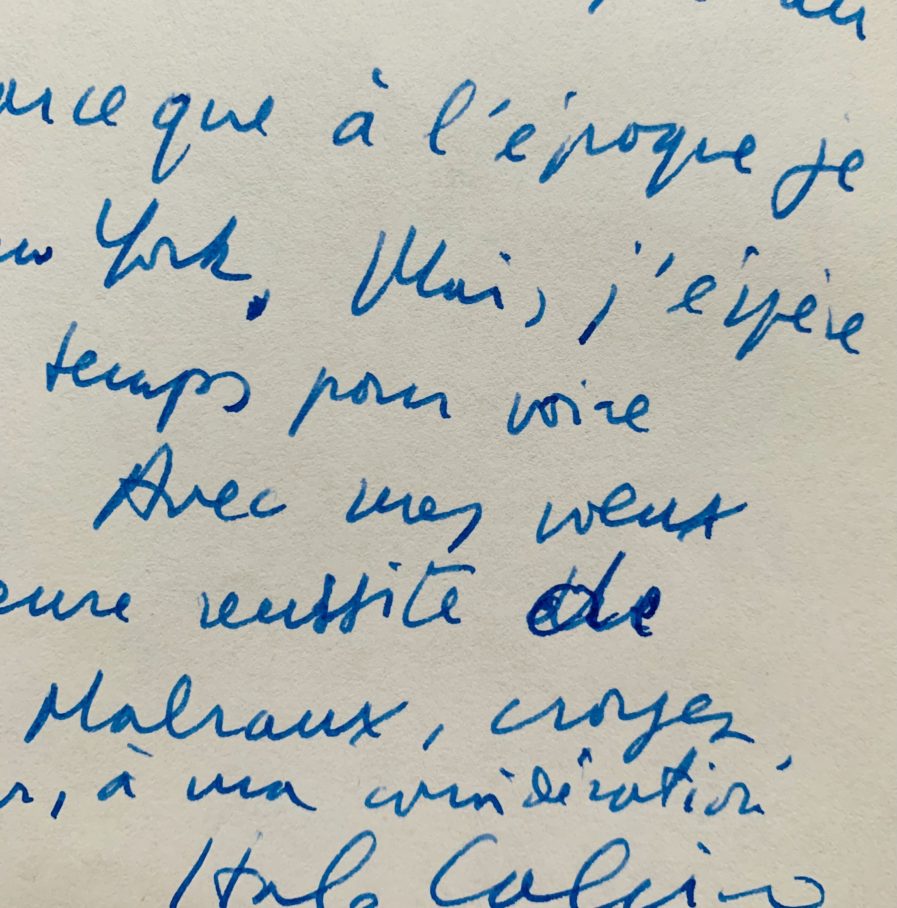 arce que à l'époque je
w York. Mais, j'éspère
temps pour voire
Avec mes voeux
eure reussite de
Malraux, croyez
r, à ma considération
Italo Calvino